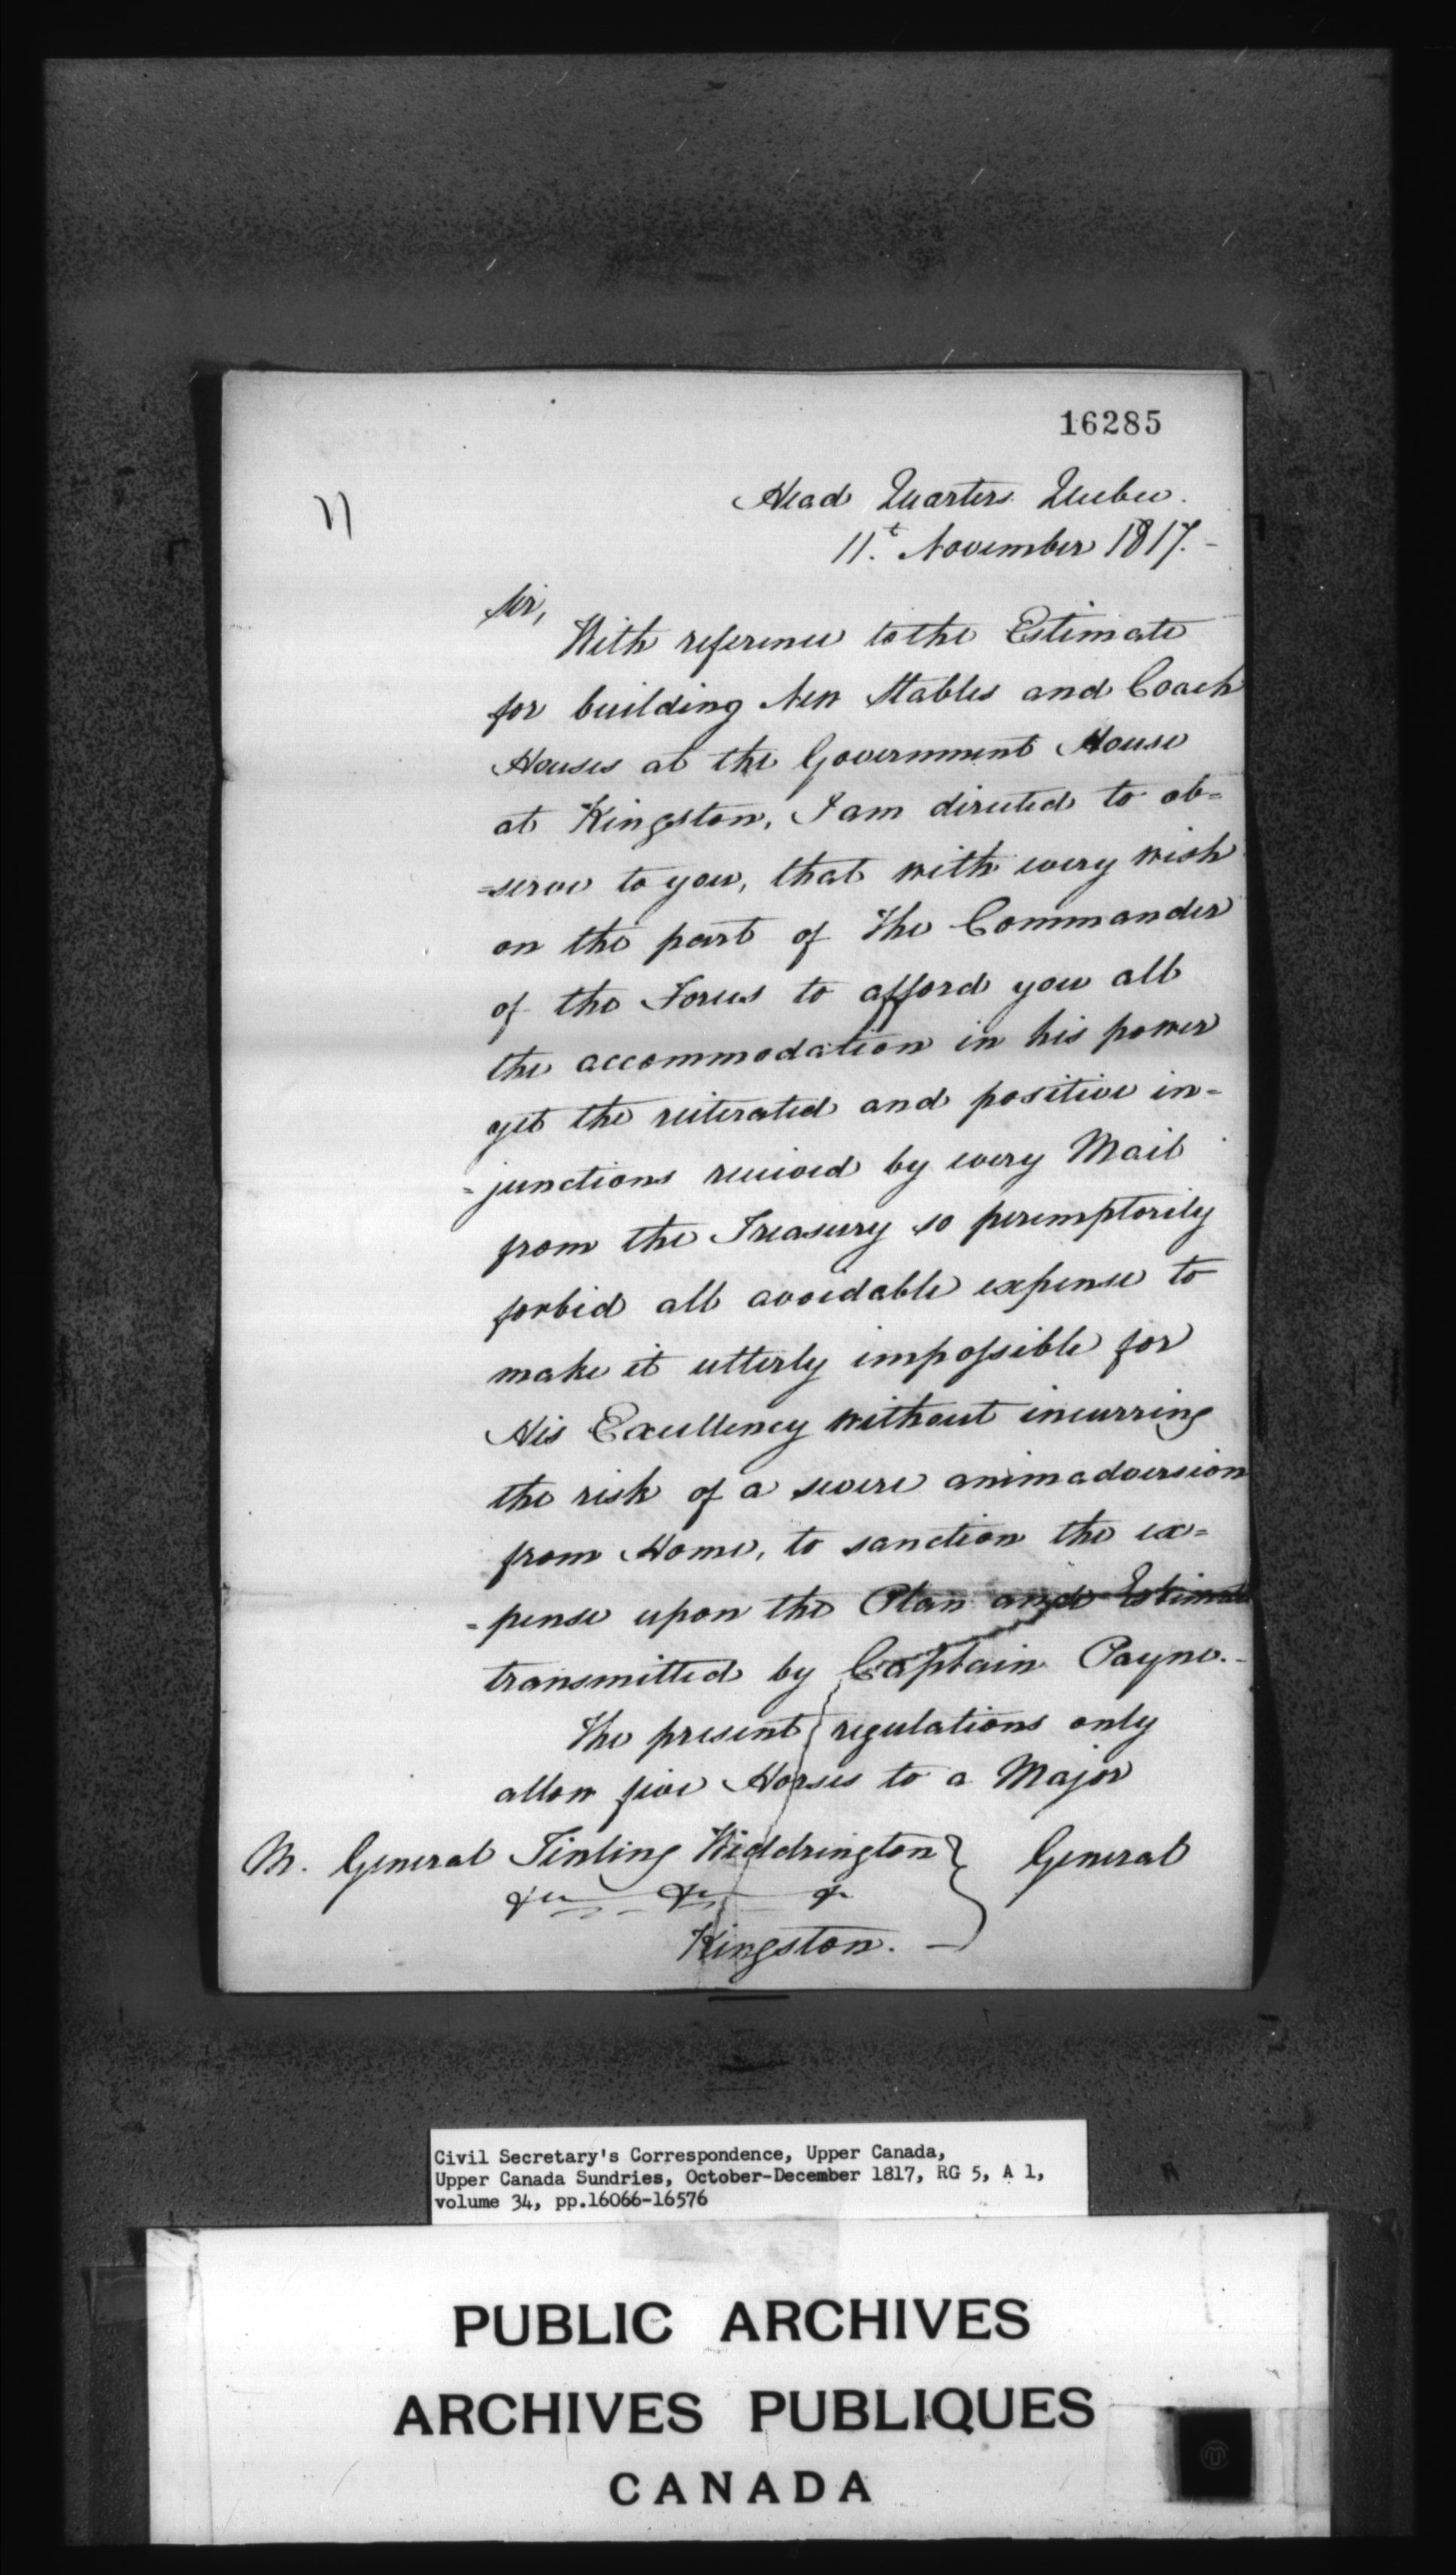 16285
Head Quarters Quebec.
11.t November 1817.-
Sir,
With reference to the Estimate
for building New Stables and Coach
Houses at the Government House
at Kingston, I am directed to ob=
=serve to you, that with every wish
on the part of The Commander
of the Forces to afford you all
the accommodation in his power
yet the reiterated and positive in=
=junctions received by every Mail
from the Treasury so peremptorily
forbid all avoidable expense to
make it utterly impossible for
His Excellency without incurring
the risk of a severe animadversion
from Home, to sanction the ex=
=pense upon the Plan and Estimate
transmitted by Captain Payne.-
The present regulations only
allow five Horses to a Major
M. General Tinling Widdrington } General
&c &c &c
Kingston. -
Civil Secretary's Correspondence, Upper Canada,
Upper Canada Sundries, October-December 1817, RG 5, A 1,
volume 34, pp.16066-16576
PUBLIC ARCHIVES
ARCHIVES PUBLIQUES
CANADA